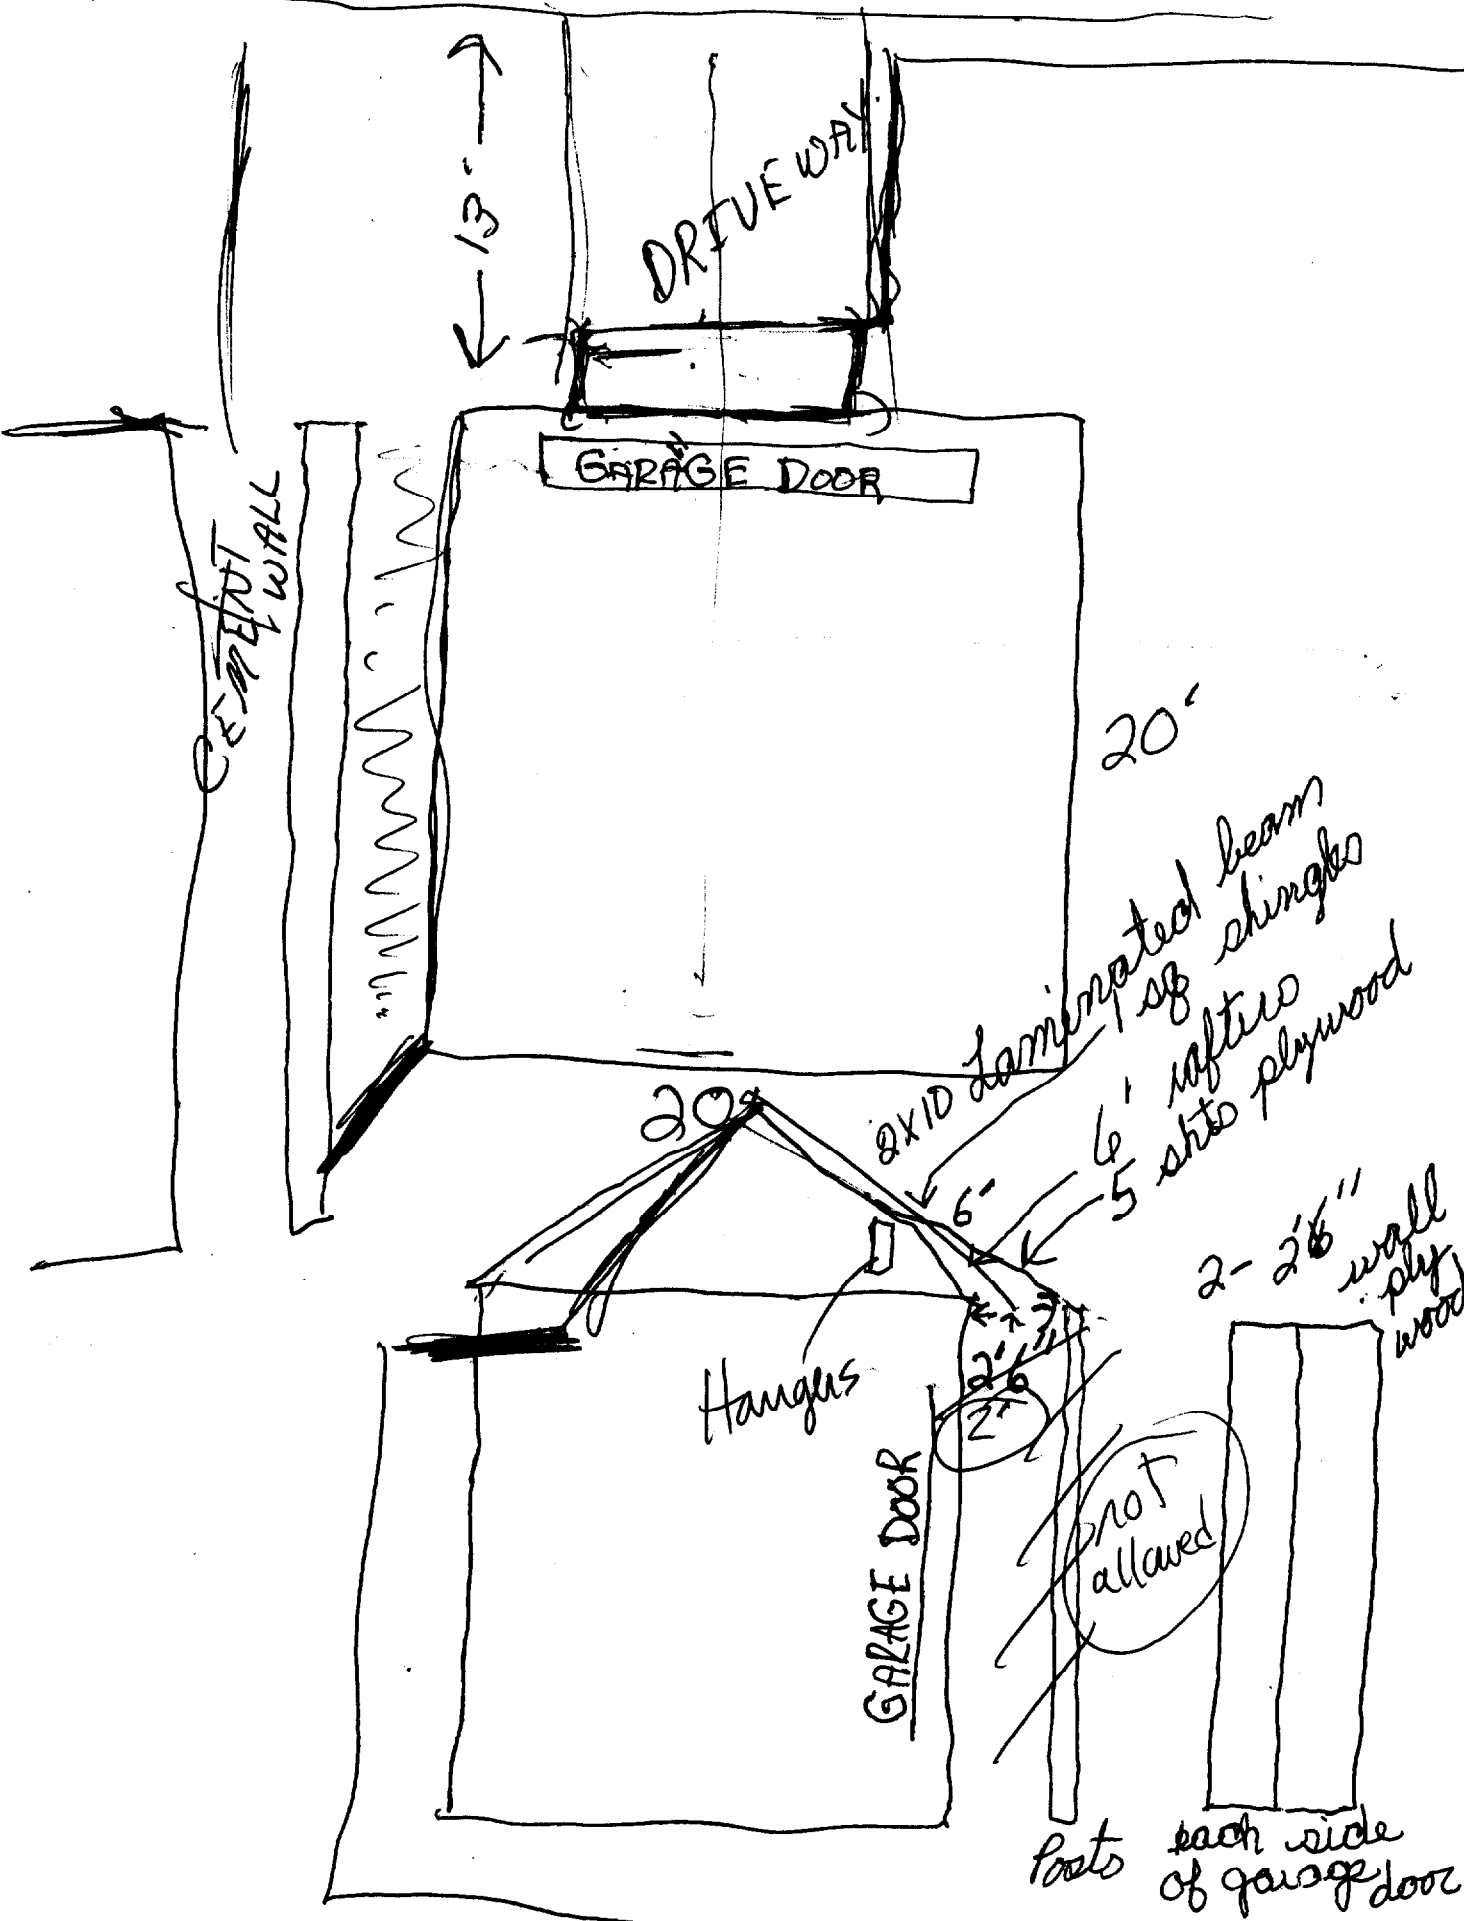 13'
DRIVEWAY
GARAGE DOOR
CEMENT
WALL
20'
2x10 Laminated beam
1 sq shingles
6' rafters
5 shts plywood
20'
6"
2- 2'6" wall
ply
wood
Hangers
2'6"
2'
GARAGE DOOR
not
allowed
Posts
each side
of garage door